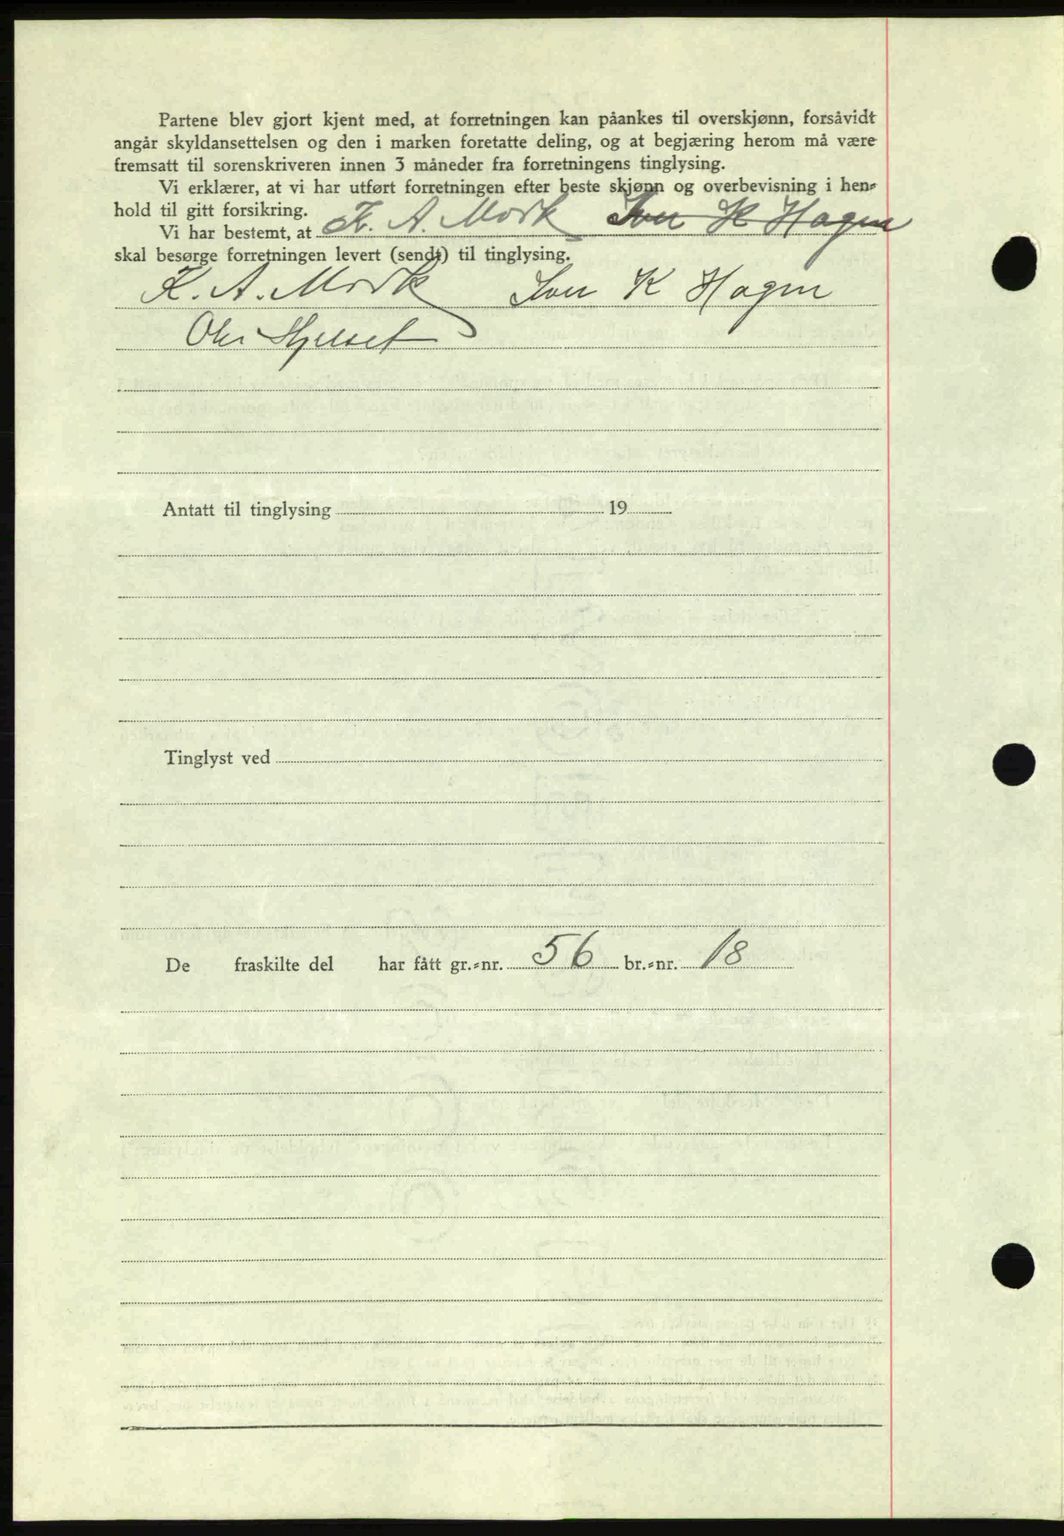 Partene blev gjort kjent med, at forretningen kan påankes til overskjønn, forsåvidt
angår skyldansettelsen og den i marken foretatte deling, og at begjæring herom må være
fremsatt til sorenskriveren innen 3 måneder fra forretningens tinglysing.
Vi erklærer, at vi har utført forretningen efter beste skjønn og overbevisning i hen-
hold til gitt forsikring.
Vi har bestemt, at K. A. Mork Iver K Hagen
skal besørge forretningen levert (sendt) til tinglysing.
K. A. Mork Iver K Hagen
Antatt til tinglysing 19
Tinglyst ved
De fraskilte del har fått gr.-nr. 56 br.-nr. 18